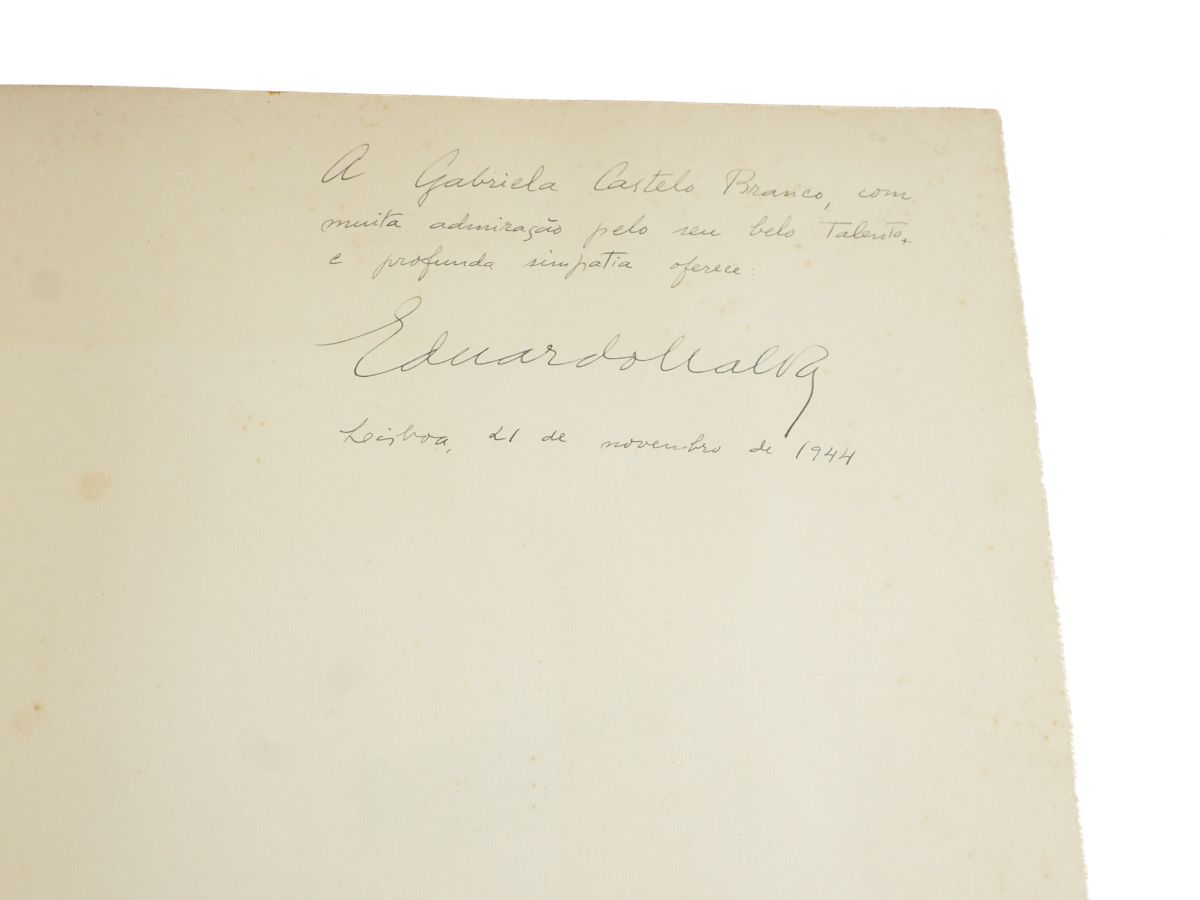 A Gabriela Castelo Branco, com
muita admiração pelo seu belo Talento,
e profunda simpatia oferece:
Eduardo Malta
Lisboa, 21 de novembro de 1944